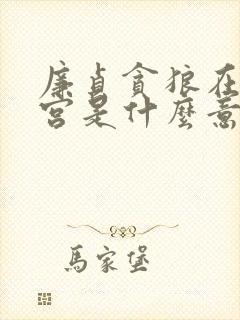 廉貞貪狼在
宮是什麼意
馬家堡